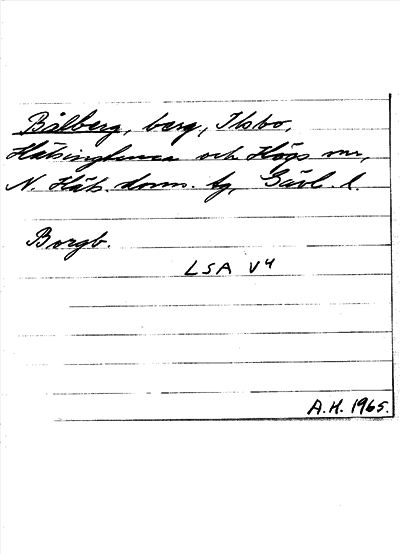 Bålberg, berg, Ilsbo,
Hälsingtuna och Högs snr,
N. Häls. doms. tg, Gävl. l.
Borgb.
LSA V4
A.H. 1965.